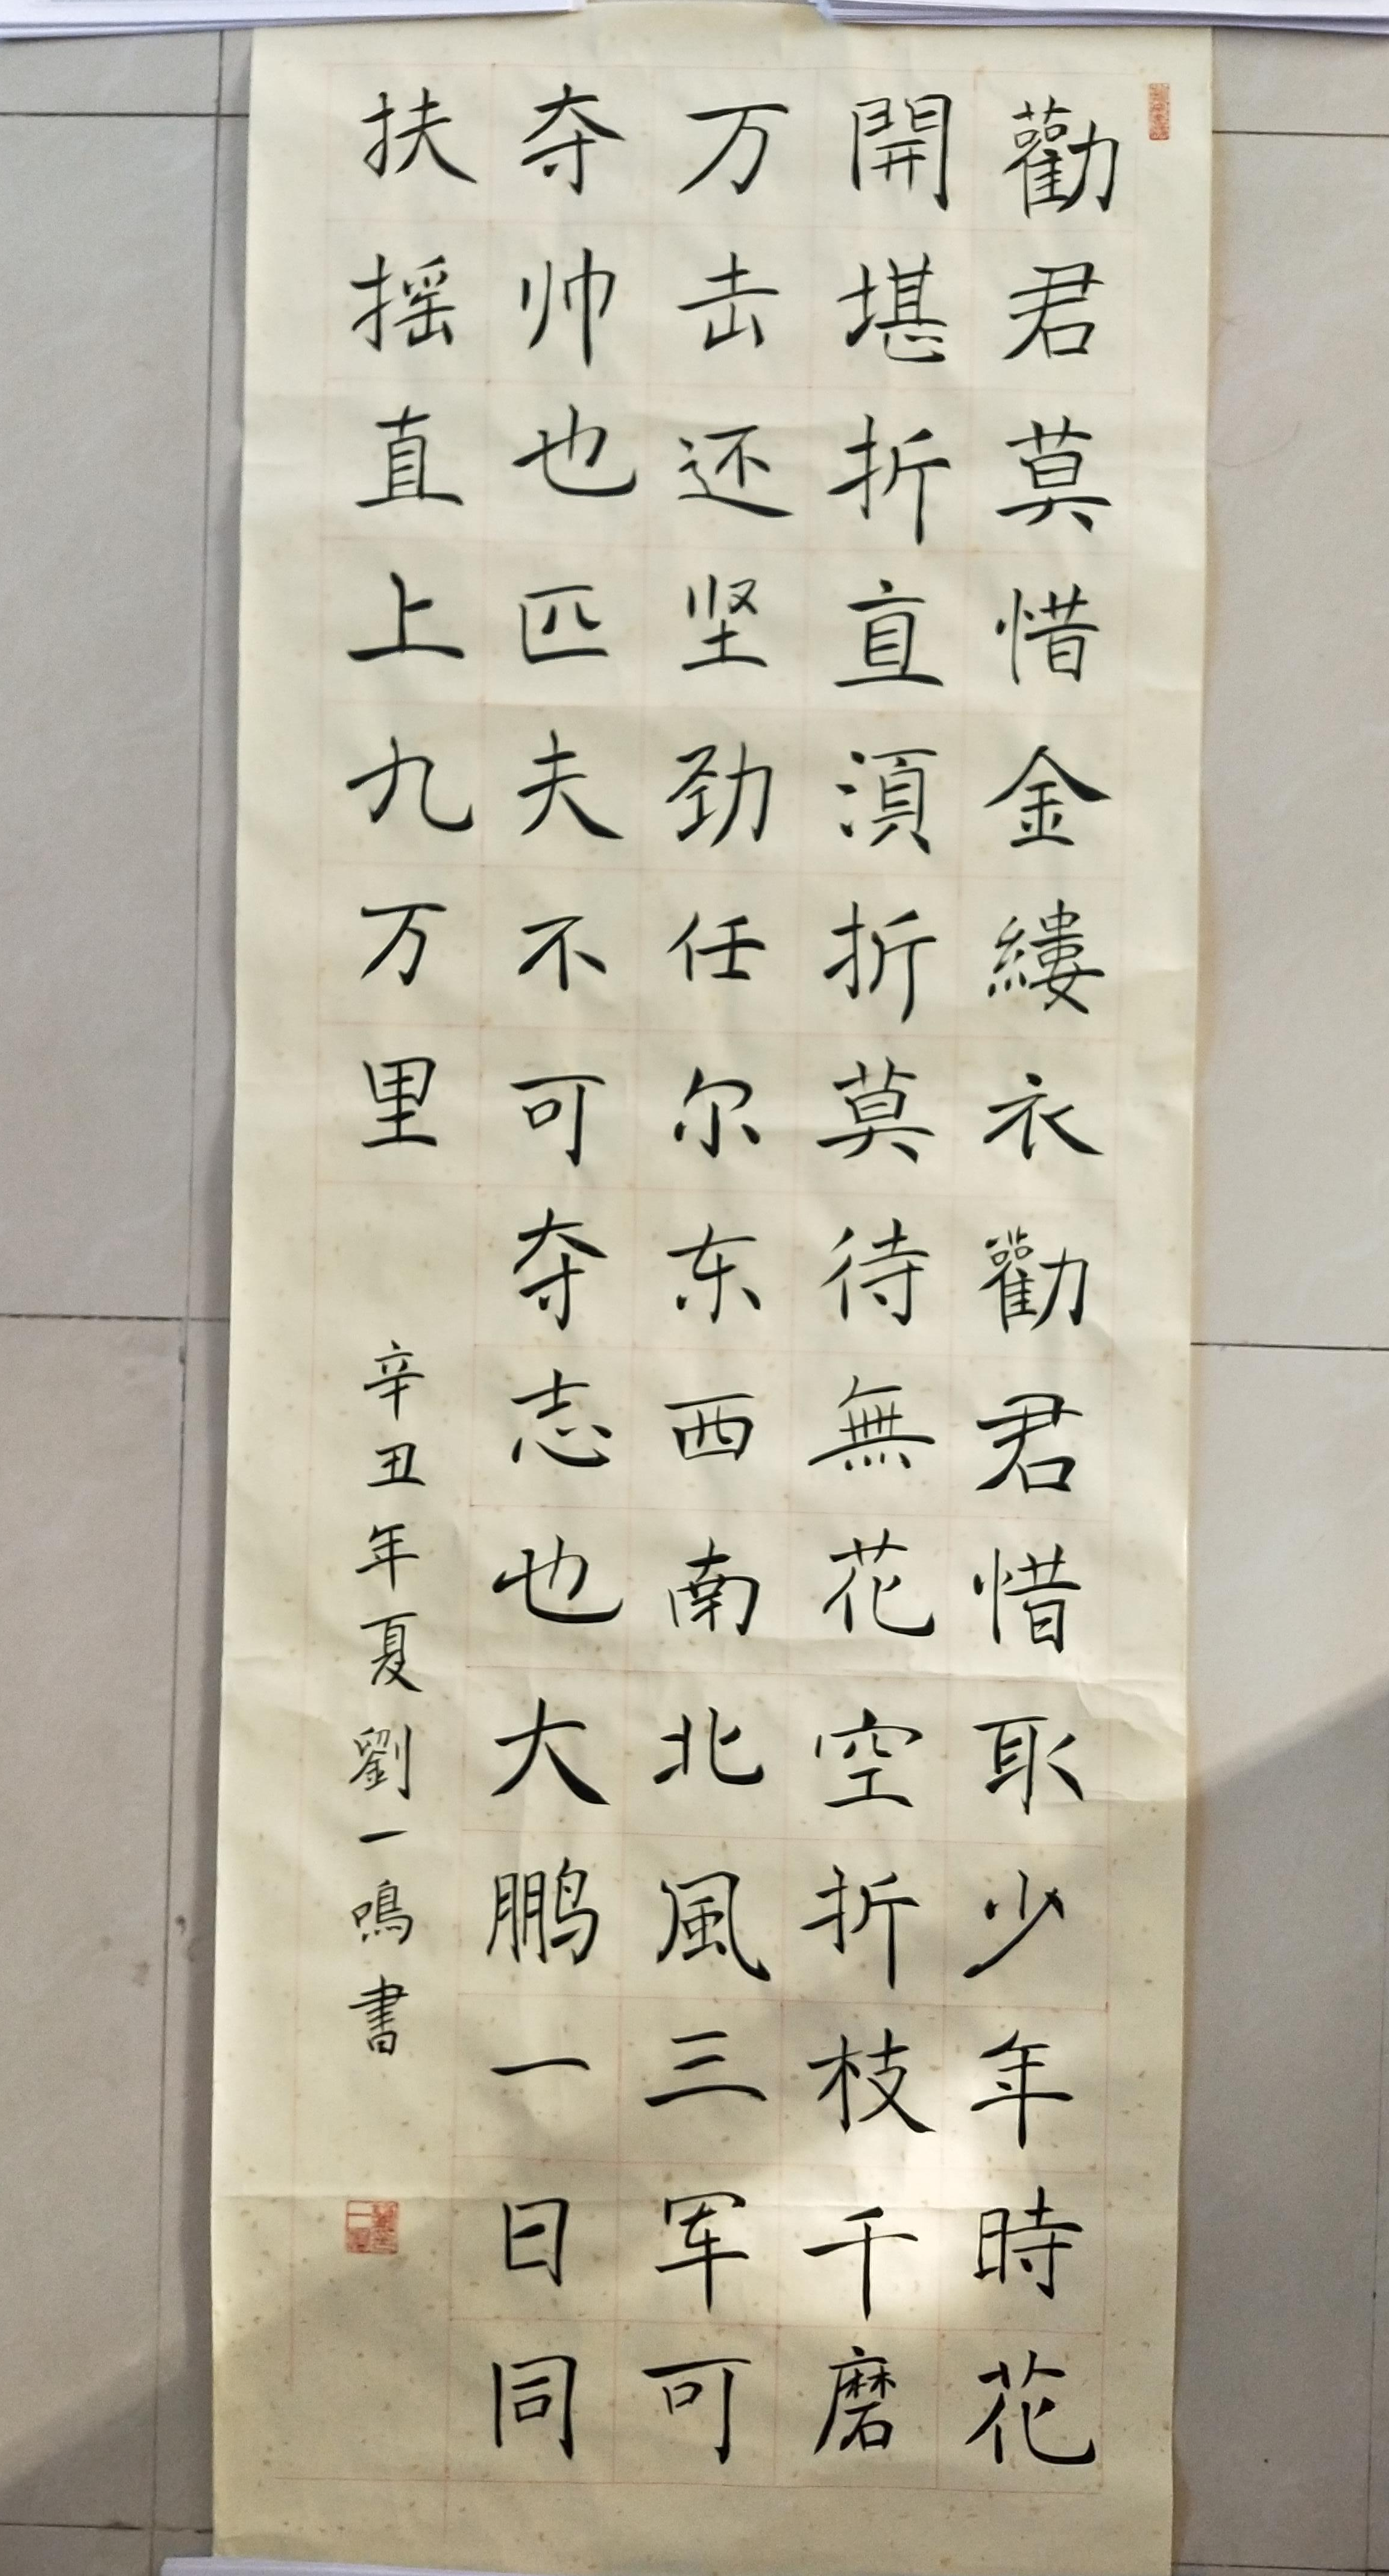 勸君莫惜金縷衣勸君惜取少年時花
開堪折直須折莫待無花空折枝千磨
万击还坚劲任尔东西南北風三军可
夺帅也匹夫不可夺志也大鹏一日同
扶摇直上九万里
辛丑年夏劉一鳴書